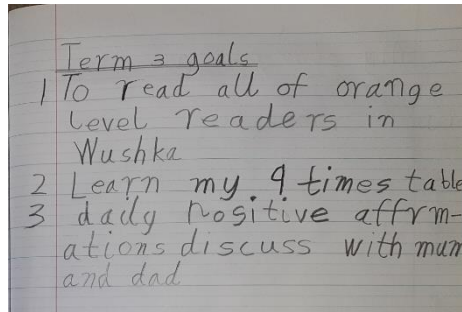 Term 3 goals
1 To read all of orange
level readers in
Wushka
2 Learn my 9 times table
3 daily positive affrm-
ations discuss with mum
and dad